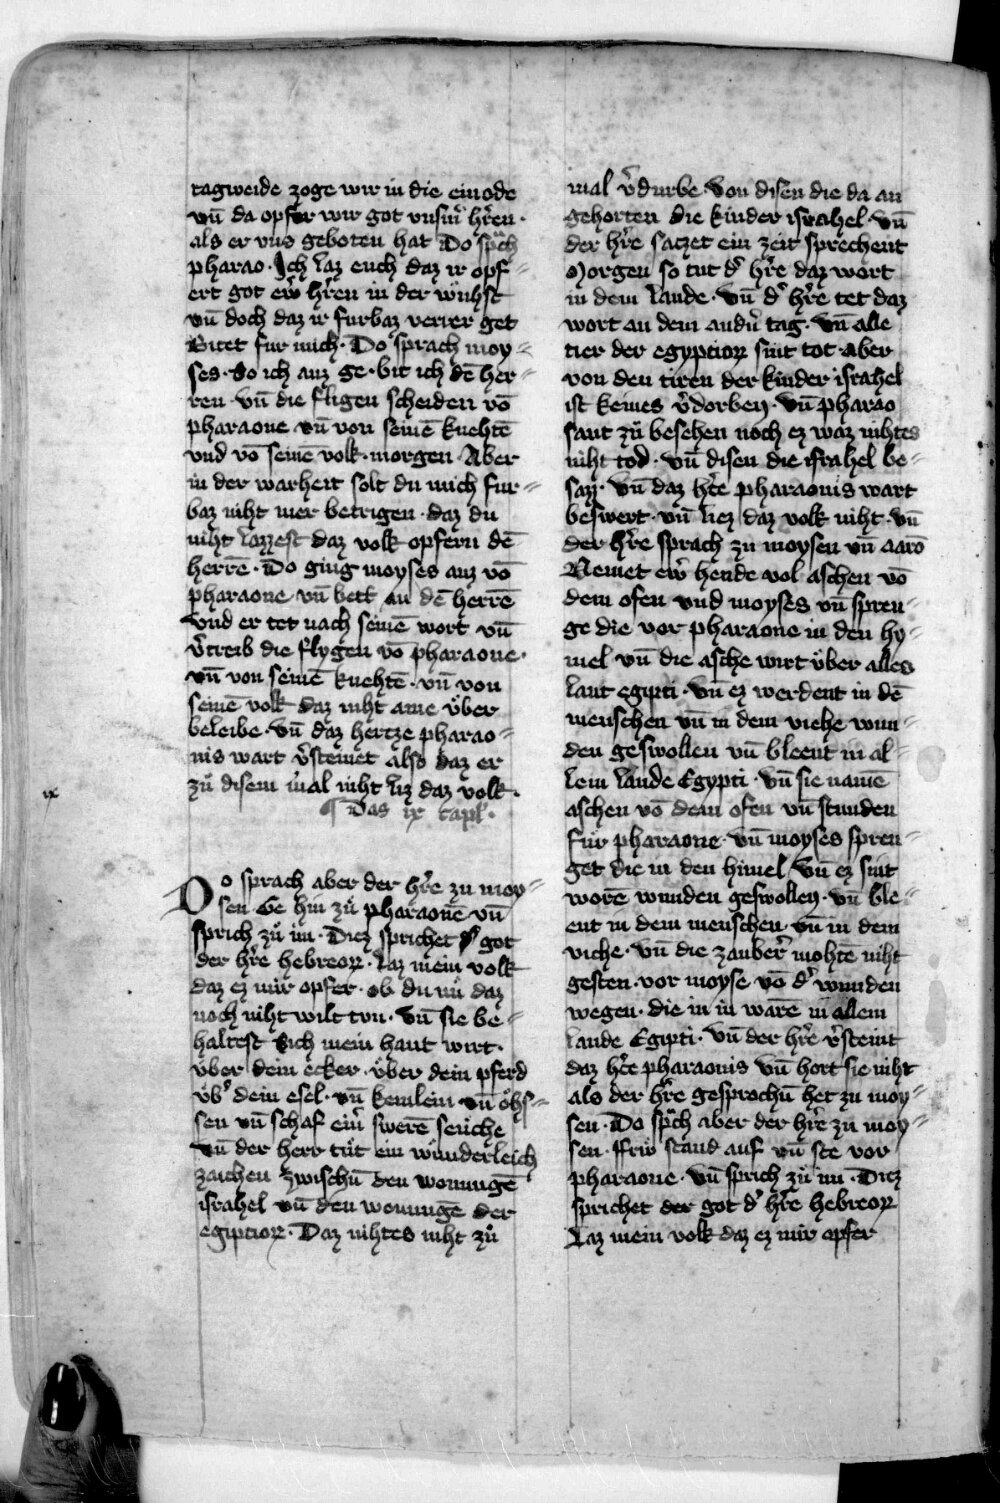 tagweide zoge wir in die einode
vn̄ da opfer wir got vnsm̄ h̓ren ·
als er vns geboten hat Do sp̈ch
pharao · Ich laz euch daz ir opf⸗
ert got ew̓ h̓ren in der wu̓hst
vn̄ doch daz ir furbaz verrer get
Bitet fur mich · Do sprach moy⸗
ses · So ich auz ge · bit ich dē her⸗
ren · vn̄ die fligen scheiden vō
pharaone vn̄ von seinē knehtē
vnd vō seinē volk · morgen · Aber
in der warheit solt du mich fur⸗
baz niht mer betrigen · daz du
niht lazzest daz volk opfern dē
herrē · Do ging moyses auz vō
pharaone vn̄ bett an dē herrē
Vnd er tet nach seinē wort vn̄
v̓treib die flygen vō pharaone ·
vn̄ von seinē knehtē · vn̄ von
seinē volk daz niht aine v̈ber
beleibe · vn̄ daz hertze pharao⸗
nis wart v̓steinet also daz er
zů disem mal niht liz daz volk ·
ix
¶ Das ix capl̓ ·
Do sprach aber der h̓re zu moy⸗
sen Ge hin zů pharaonē vn̄
sprich zů im · Diez sprichet d̓ got
der h̓re hebreoꝝ · Laz mein volk
daz ez mir opfer · ob du nů daz
noch niht wilt tvn · vn̄ sie be⸗
haltest Sich mein hant wirt ·
v̈ber dein ecker · v̈ber dein pferd
v̈b̓ dein esel · vn̄ kemlein vn̄ öhs⸗
sen vn̄ schaf ein̓ swerē seuche
Vn̄ der herr tůt ein wunderleich
zaichen zwischn̄ den wonungē
israhel vn̄ den wonungē der
egiptioꝝ · Daz nihtes niht zů
mal v̓durbe · von disen die da an
gehorten die kinder israhel · vn̄
der h̓re saczet ein zeit sprechent
Morgen so tut d̓ h̓re daz wort
in dem lande · vn̄ d̓ h̓re tet daz
wort an dem andn̓ tag · vn̄ alle
tier der egyptioꝝ sint tot · aber
von den tiren der kinder israhel
ist keines v̓dorben · vn̄ pharao
sant zů besehen noch ez waz nihtes
niht tod · vn̄ disen die israhel be⸗
sazz · vn̄ daz h̓tze pharaonis wart
beswert · vn̄ liez daz volk niht · vn̄
der h̓re sprach zu moysen vn̄ aarō
Nemet ew̓ hende vol aschen vō
dem ofen vnd moyses vn̄ spren⸗
ge die vor pharaone in den hy⸗
mel vn̄ die asche wirt v̈ber alles
lant egipti · vn̄ ez werdent in dē
menschen vn̄ in dem viehe wun⸗
den geswollen vn̄ bleent in al⸗
lem lande Egypti · vn̄ sie namē
aschen vō dem ofen vn̄ stunden
fur pharaone · vn̄ moyses spren⸗
get die in den himel vn̄ ez sint
worē wunden geswollen · vn̄ ble⸗
ent in dem menschen · vn̄ in dem
viehe · vn̄ die zauber̓ mohtē niht
gesten · vor moyse · vō d̓ wunden
wegen · die in in warē in allem
lande Egipti · vn̄ der h̓re v̓steint
daz h̓tze pharaonis vn̄ hort sie niht
als der h̓re gesprochn̄ het zu moy⸗
sen · Do sp̈ch aber der h̓re zu moy⸗
sen · frw̓ stand auf vn̄ ste vor
pharaone · vn̄ sprich zů im · Diez
sprichet der got d̓ h̓re hebreoꝝ
Laz mein volk daz ez mir opfer